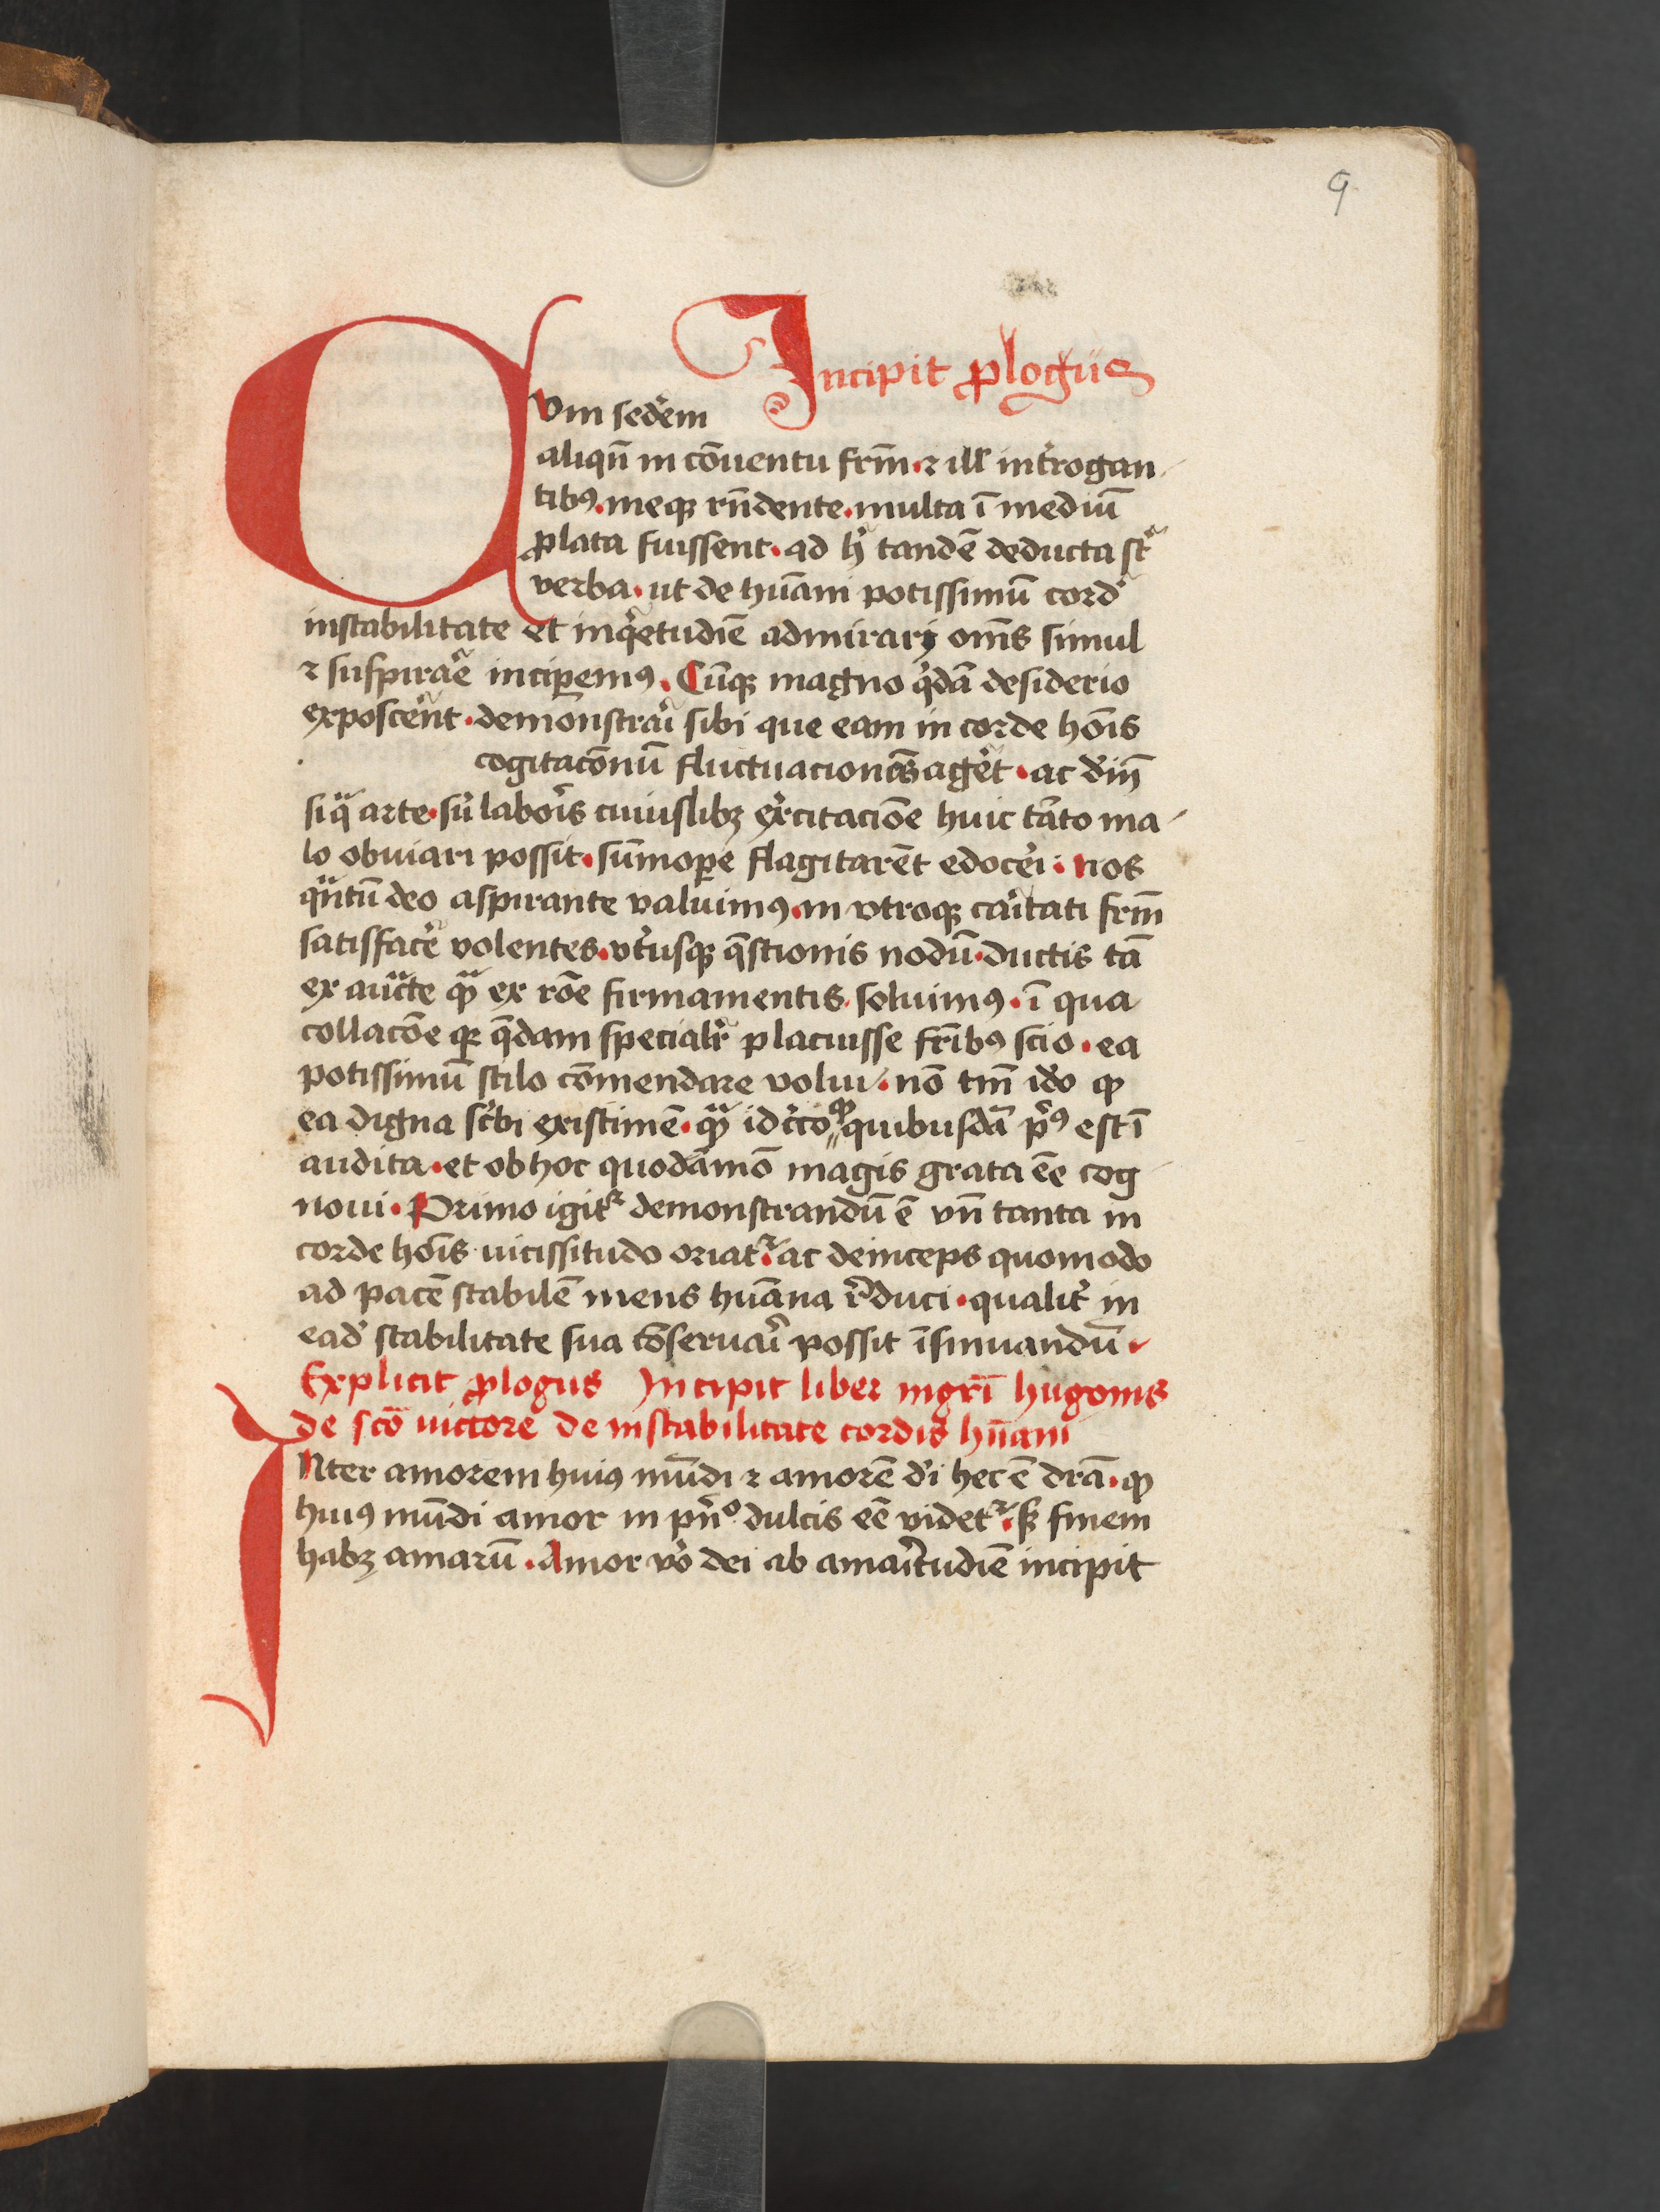 9
Incipit ꝓlogus
Cvm sederem
aliqn̄ in cōuentu frm̄ ⁊ ill' intˀrogan
tibꝯ meqꝫ rn̄dente multa ī mediū
ꝓlata fuissent ad hˀ tandē deducta st̄
verba ut de hūani potissimū cordˀ
instabilitate et inqˀetudīe admirarj om̄s simul
⁊ suspirarˀe inciꝑemꝯ Cūqꝫ magno qˀdā desiderio
exposcerˀent demonstrarˀi sibi que eam in corde hoīs
cogitacōnū fluctuaciones agerˀet ac d'in̄
siqͣ arte sˀu laborˀis cuiuslibꝫ exˀcitacione huic tāto ma
lo obuiari possit sūmoꝑe flagitarēt edocerˀi Nos
qͣntū deo aspirante valuimꝯ in vtroqꝫ carˀitati frm̄
satisfacerˀe volentes vtˀusqꝫ q̄stionis nodū ductis tā
ex auctˀte qͣꝫ ex rōe firmamentis soluimꝯ ī qua
collacōe qꝛ q̄dam specialrˀ placuisse frībꝯ scio ea
potissimū stilo cōmendare volui nō tm̄ idˀo ꝙ
ea digna scˀbi existimē qͣꝫ idcˀco ꝙ quibusdā pˀꝯ est ī
audita et ob hoc quodāmō magis grata eē cog
noui Primo igitᷣ demonstrandū ē vn̄ tanta in
corde hoīs uicissitudo oriatᷣ ac deinceps quomodo
ad pacē stabilē mens hūana rˀduci qualitˀ in
eadˀ stabilitate sua cōseruarˀi possit īsinuandū
Explicit ꝓlogus Incipit liber mgrī hugonis
de scō victore de instabilitate cordis hūani
INter amorem huiꝯ mūdi ⁊ amorē d'i hec ē dr̄a ꝙ
huiꝯ mūdi amor in pˀnᵒ dulcis eē videtᷣ sꝫ finem
habꝫ amarū Amor vˀo dei ab amarˀitudīe incipit